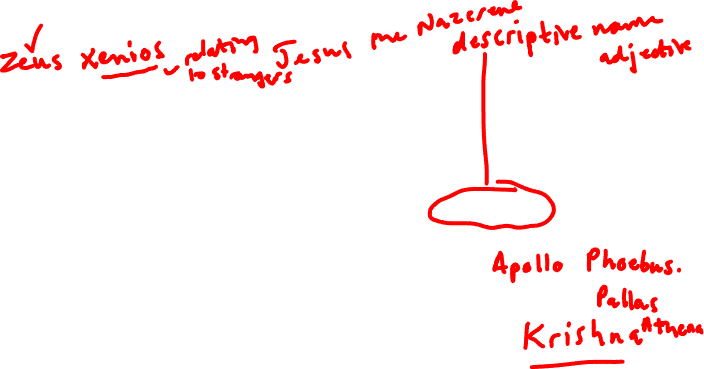 Zeus Xenios relating to strangers Jesus the Nazerene
descriptive name
adjective
Apollo Phoebus.
Pallas Athena
Krishna